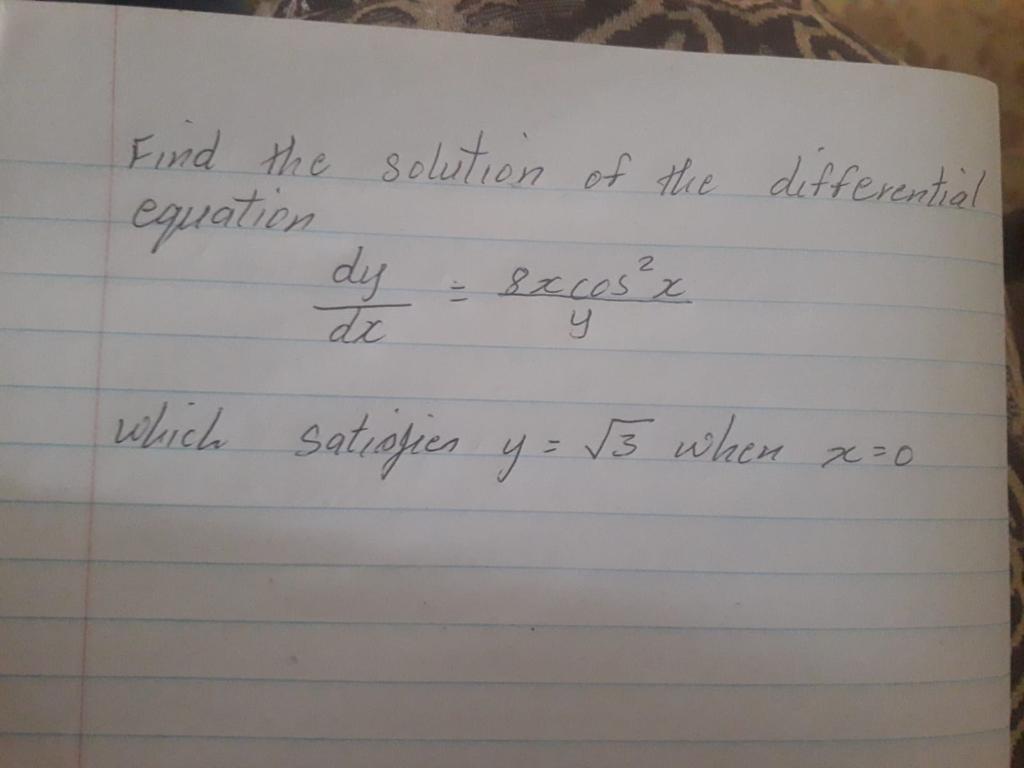 Find the solution of the differential
equation
dy/dx = 8x cos²x / y
which satisfies y = √3 when x = 0